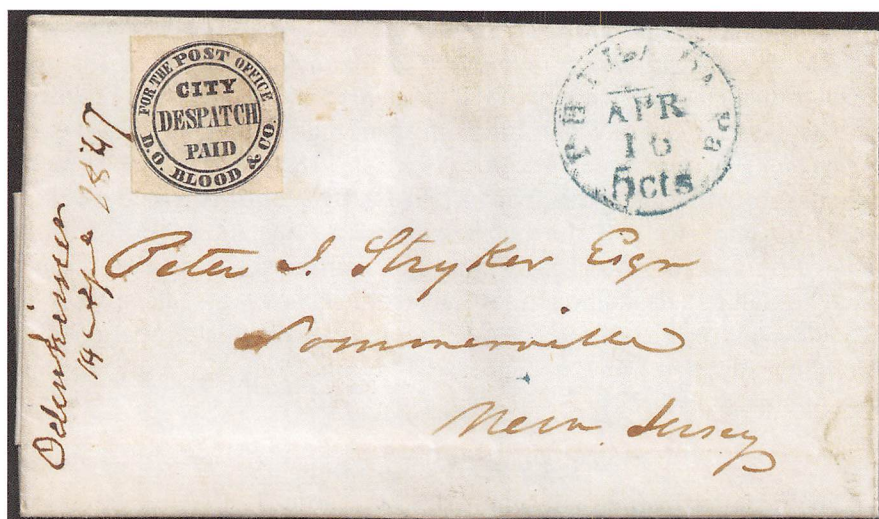 FOR THE POST OFFICE
CITY
DESPATCH
PAID
D.O. BLOOD & CO.
PHILADA Pa.
APR
16
5cts
Peter I. Stryker Esqr
Sommerville
New Jersey
1847